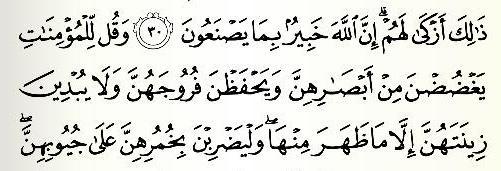 ذَٰلِكَ أَزْكَىٰ لَهُمْ ۗ إِنَّ ٱللَّهَ خَبِيرٌۢ بِمَا يَصْنَعُونَ ٣٠ وَقُل لِّلْمُؤْمِنَٰتِ
يَغْضُضْنَ مِنْ أَبْصَٰرِهِنَّ وَيَحْفَظْنَ فُرُوجَهُنَّ وَلَا يُبْدِينَ
زِينَتَهُنَّ إِلَّا مَا ظَهَرَ مِنْهَا ۖ وَلْيَضْرِبْنَ بِخُمُرِهِنَّ عَلَىٰ جُيُوبِهِنَّ ۖ